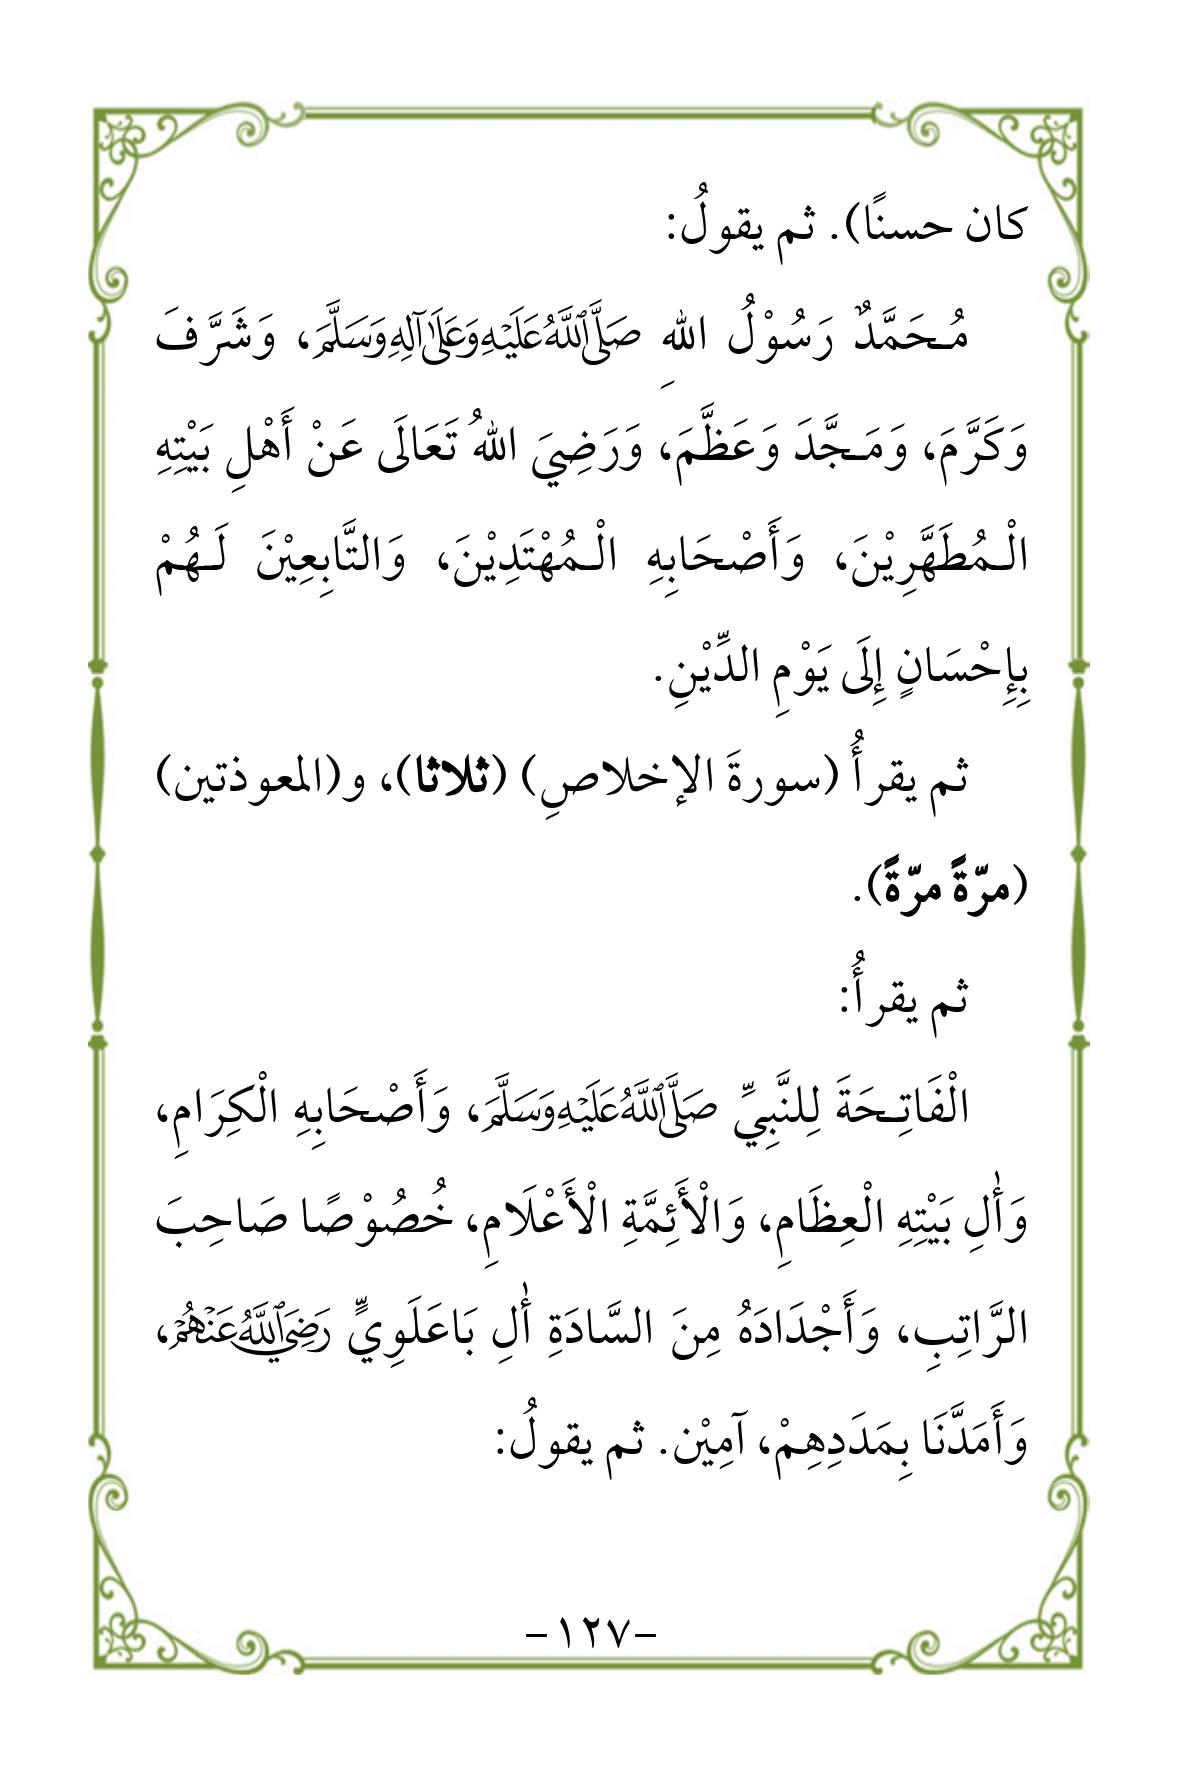 كان حسنًا). ثم يقولُ:
مُـحَمَّدٌ رَسُوْلُ اللهِ صَلَّى اللَّهُ عَلَيْهِ وَعَلَىٰ آلِهِ وَسَلَّمَ، وَشَرَّفَ
وَكَرَّمَ، وَمَـجَّدَ وَعَظَّمَ، وَرَضِيَ اللهُ تَعَالَى عَنْ أَهْلِ بَيْتِهِ
الْـمُطَهَّرِيْنَ، وَأَصْحَابِهِ الْـمُهْتَدِيْنَ، وَالتَّابِعِيْنَ لَـهُمْ
بِإِحْسَانٍ إِلَى يَوْمِ الدِّيْنِ.
ثم يقرأُ (سورةَ الإخلاصِ) (ثلاثا)، و(المعوذتين)
(مرّةً مرّةً).
ثم يقرأُ:
الْفَاتِـحَةَ لِلنَّبِيِّ صَلَّى اللَّهُ عَلَيْهِ وَسَلَّمَ، وَأَصْحَابِهِ الْكِرَامِ،
وَأٰلِ بَيْتِهِ الْعِظَامِ، وَالْأَئِمَّةِ الْأَعْلَامِ، خُصُوْصًا صَاحِبَ
الرَّاتِبِ، وَأَجْدَادَهُ مِنَ السَّادَةِ أٰلِ بَاعَلَوِيٍّ رَضِيَ اللَّهُ عَنْهُمْ،
وَأَمَدَّنَا بِمَدَدِهِمْ، آمِيْن. ثم يقولُ:
-١٢٧-